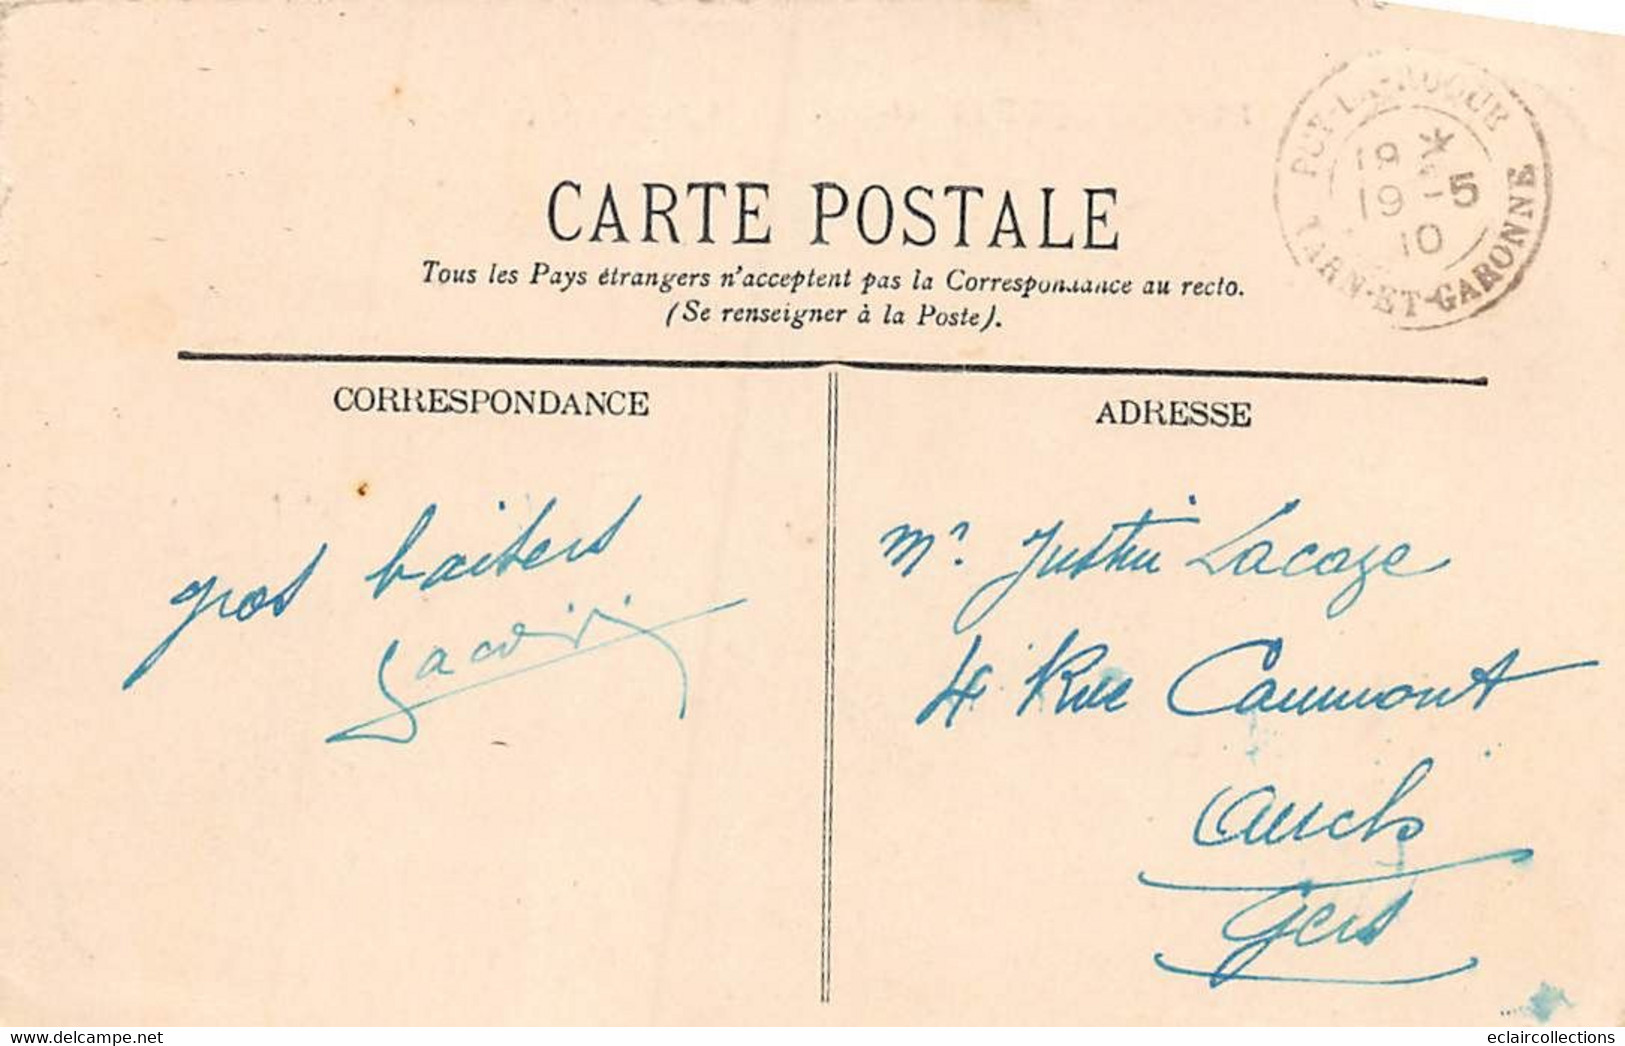 CARTE POSTALE
Tous les Pays étrangers n'acceptent pas la Correspondance au recto.
(Se renseigner à la Poste).
PUY-LAROQUE
19 *
19 -5
10
TARN-ET-GARONNE
CORRESPONDANCE
gros baisers
ADRESSE
Mr. Justin Lacaze
4 Rue Caumont
Auch
Gers
eclaircollections